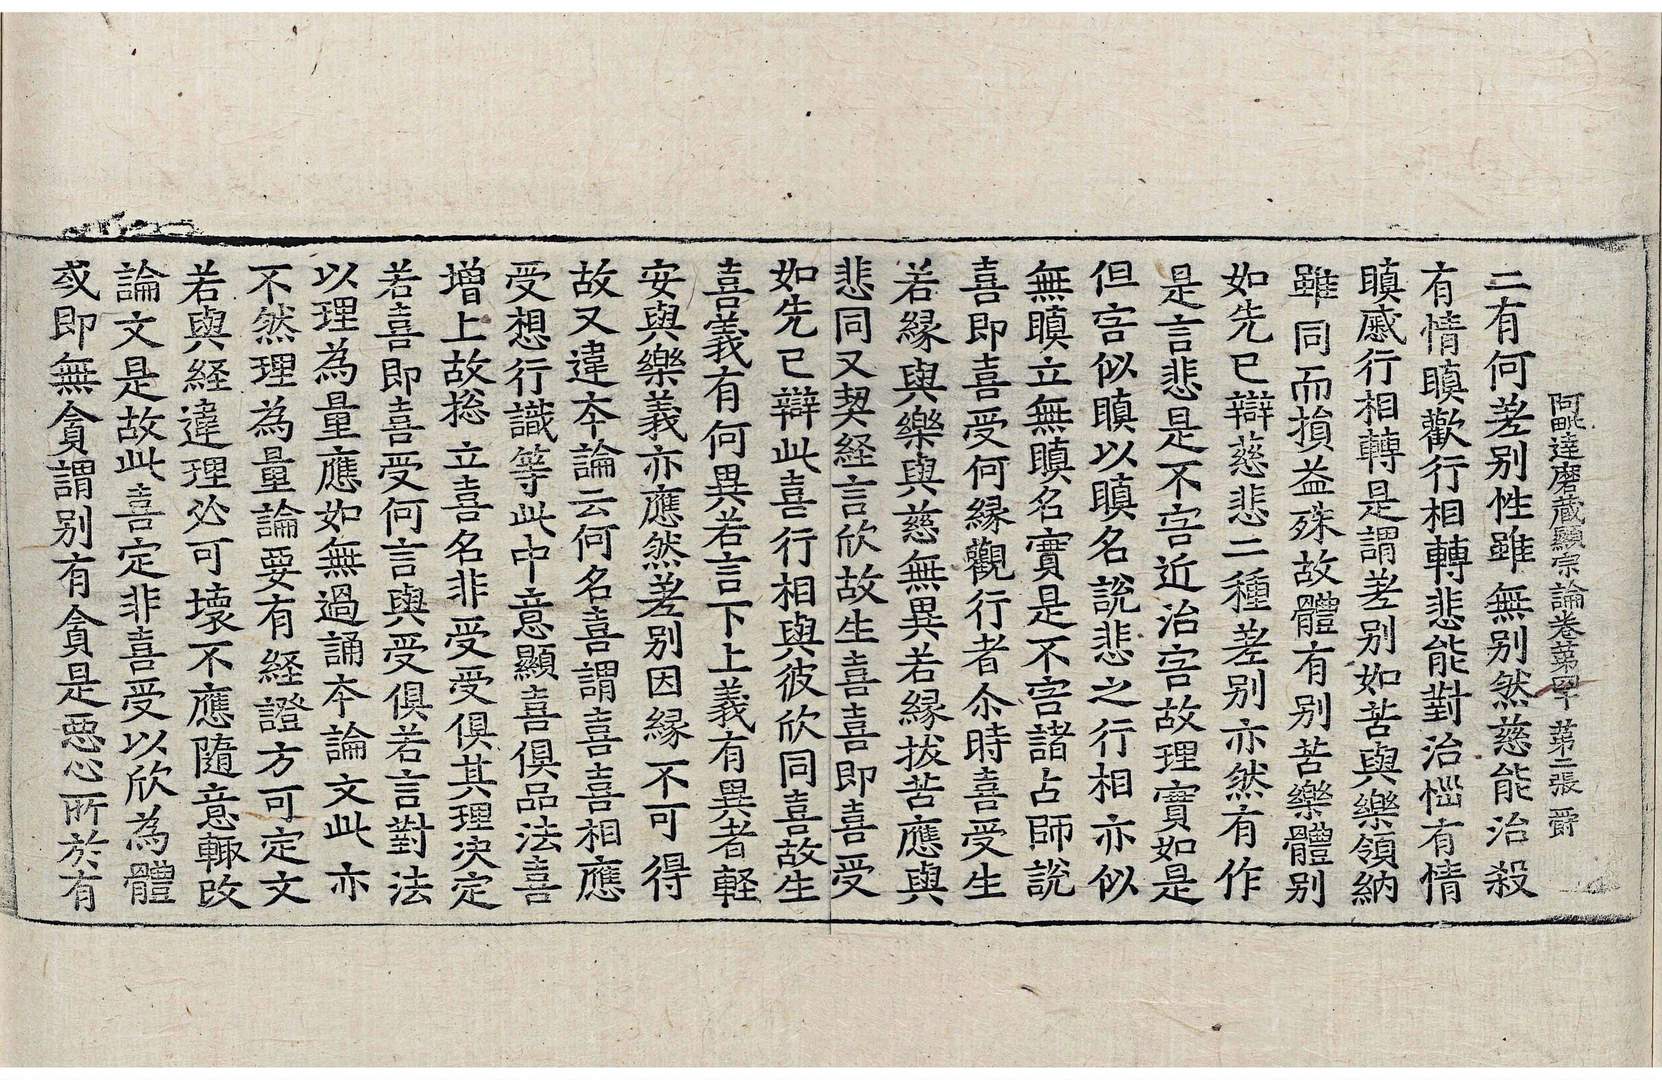 阿毗達磨藏顯宗論卷第四十　第二張　爵
二有何差別性雖無別然慈能治殺
有情瞋歡行相轉悲能對治惱有情
瞋慼行相轉是謂差別如苦與樂領納
雖同而損益殊故體有別苦樂體別
如先已辯慈悲二種差別亦然有作
是言悲是不害近治害故理實如是
但害似瞋以瞋名說悲之行相亦似
無瞋立無瞋名實是不害諸古師說
喜即喜受何緣觀行者尒時喜受生
若緣與樂與慈無異若緣拔苦應與
悲同又契経言欣故生喜喜即喜受
如先已辯此喜行相與彼欣同喜故生
喜義有何異若言下上義有異者軽
安與樂義亦應然差別因緣不可得
故又違夲論云何名喜謂喜喜相應
受想行識等此中意顯喜俱品法喜
增上故捴立喜名非受受俱其理決定
若喜即喜受何言與受俱若言對法
以理為量應如無過誦夲論文此亦
不然理為量論要有経證方可定文
若與経違理必可壞不應隨意輙改
論文是故此喜定非喜受以欣為體
或即無貪謂別有貪是惡心所於有